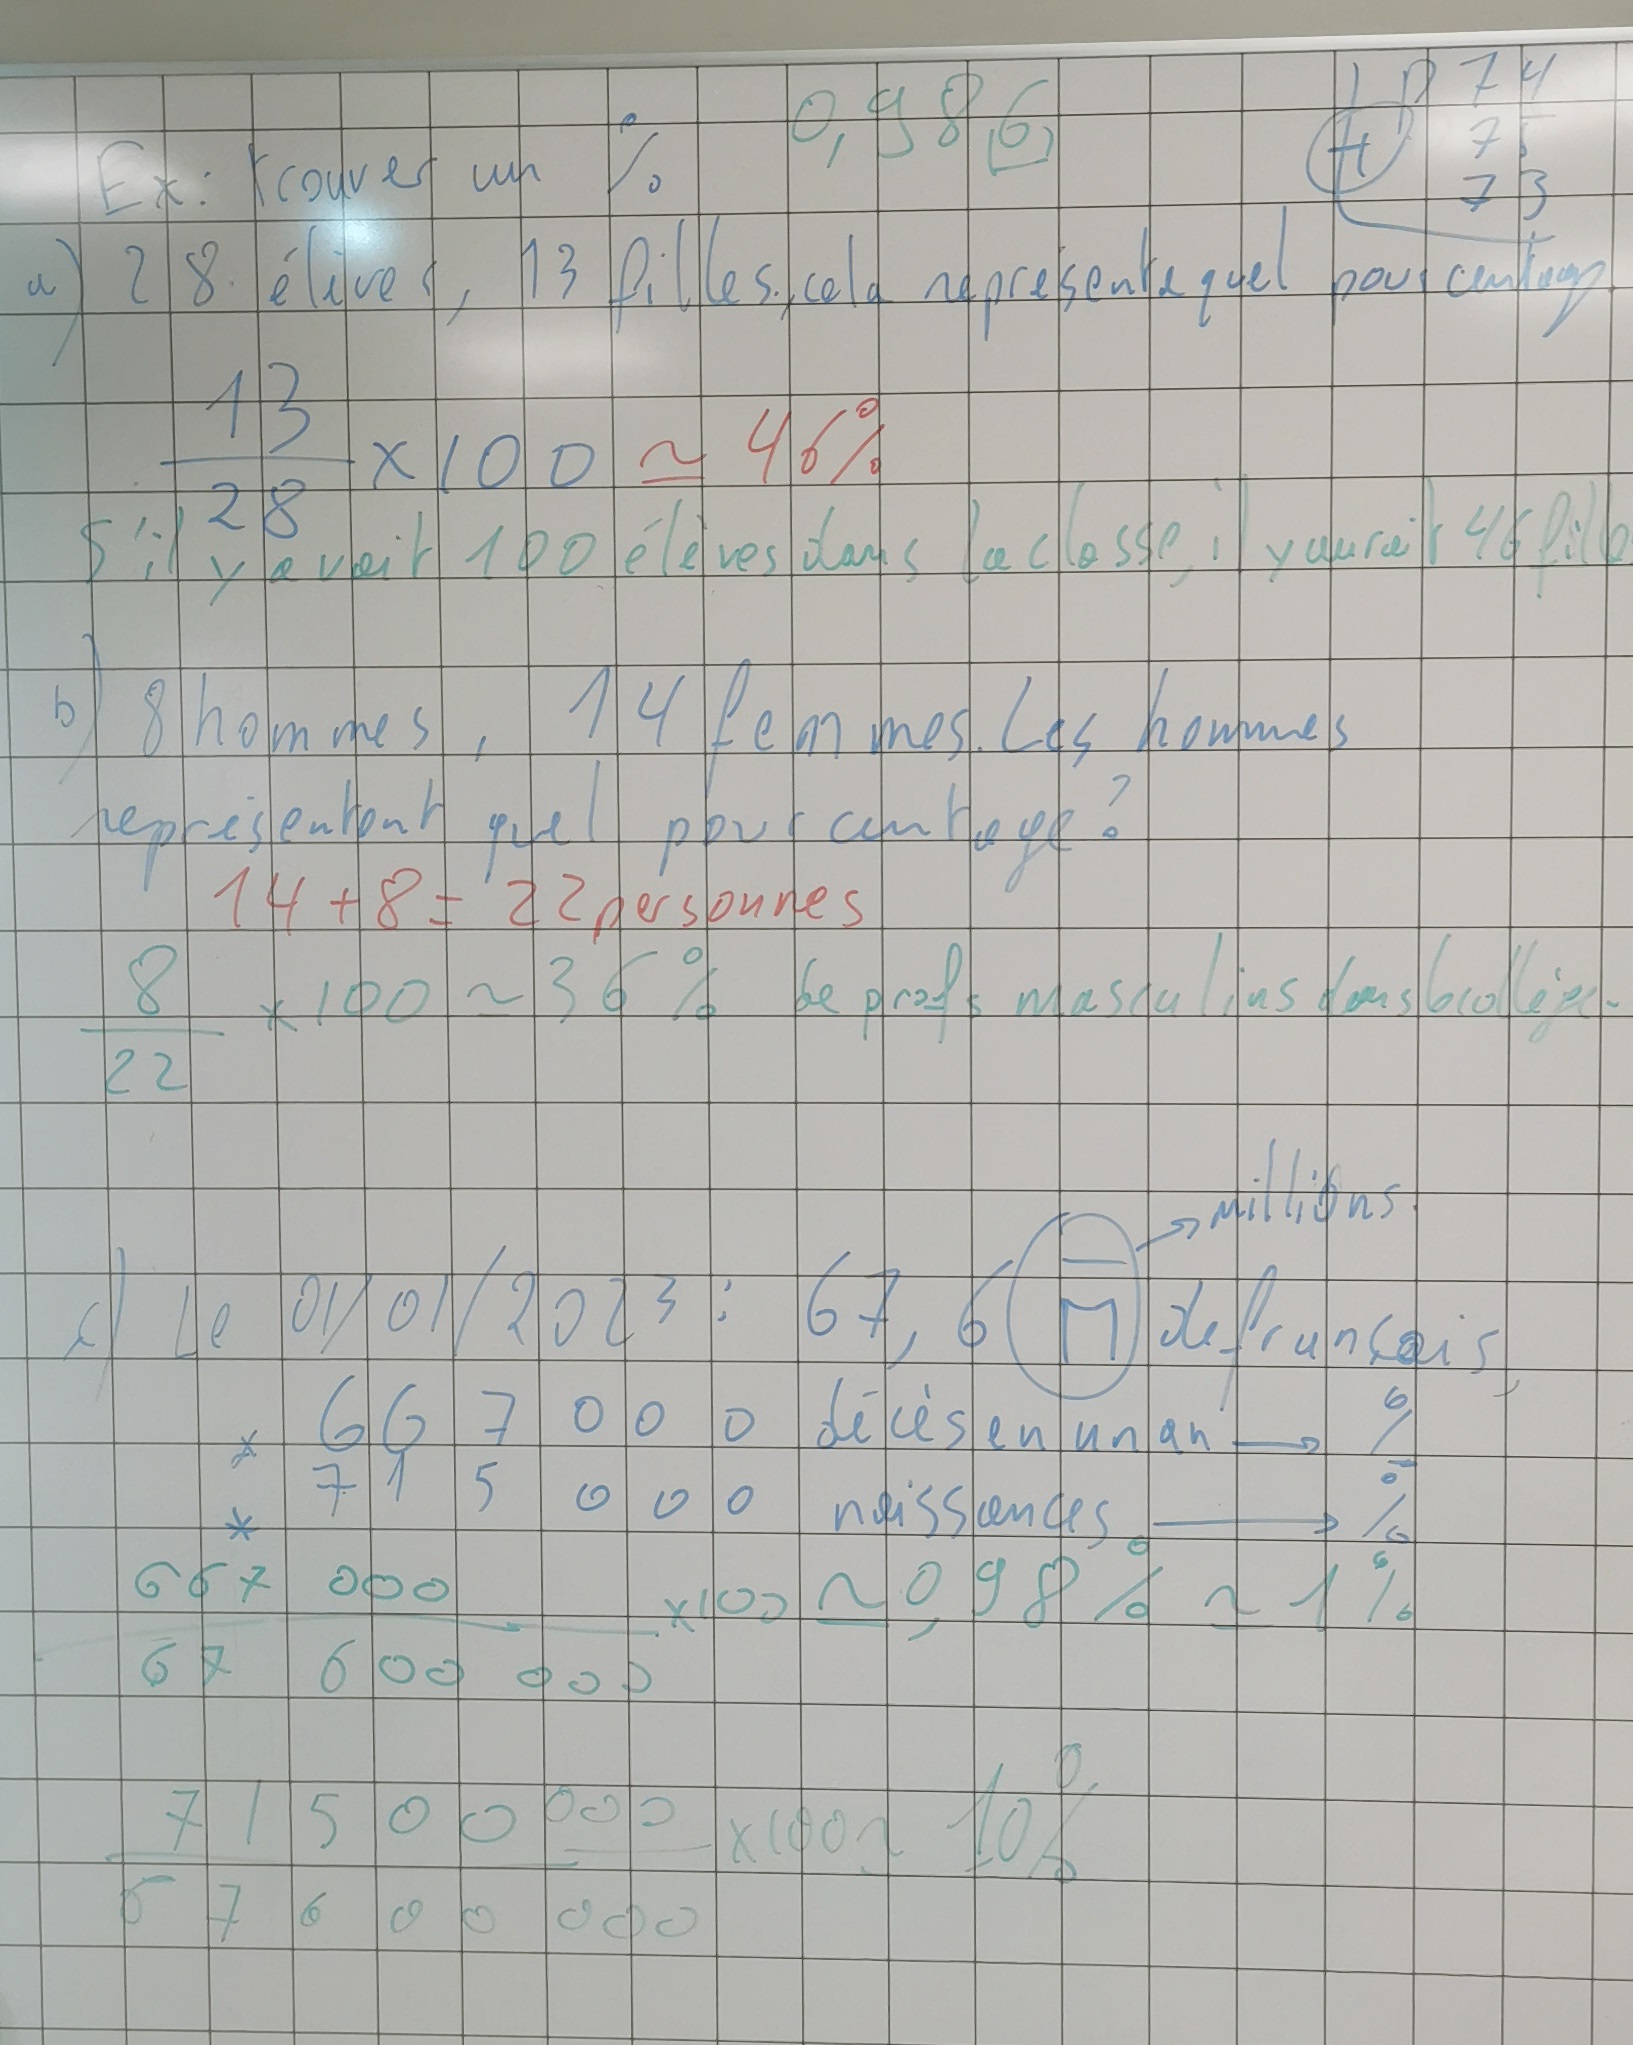 0,986
74
H 75
73
Ex: trouver un %
a) 28 élèves, 13 filles, cela représente quel pourcentage
13
28
x100 ≃ 46%
S'il y avait 100 élèves dans la classe, il y aurait 46 fille
b) 8 hommes, 14 femmes. Les hommes
représentent quel pourcentage?
14+8= 22 personnes
8
22
x100 ~ 36% de profs masculins dans le collège.
→ millions.
c) Le 01/01/2023 : 67,6 M de français,
* 667000 décès en un an → %
* 715000 naissances → %
667 000
67 600 000
x100 ≃ 0,98% ≃ 1%
71500 000
67600 000
x100 ~ 10%